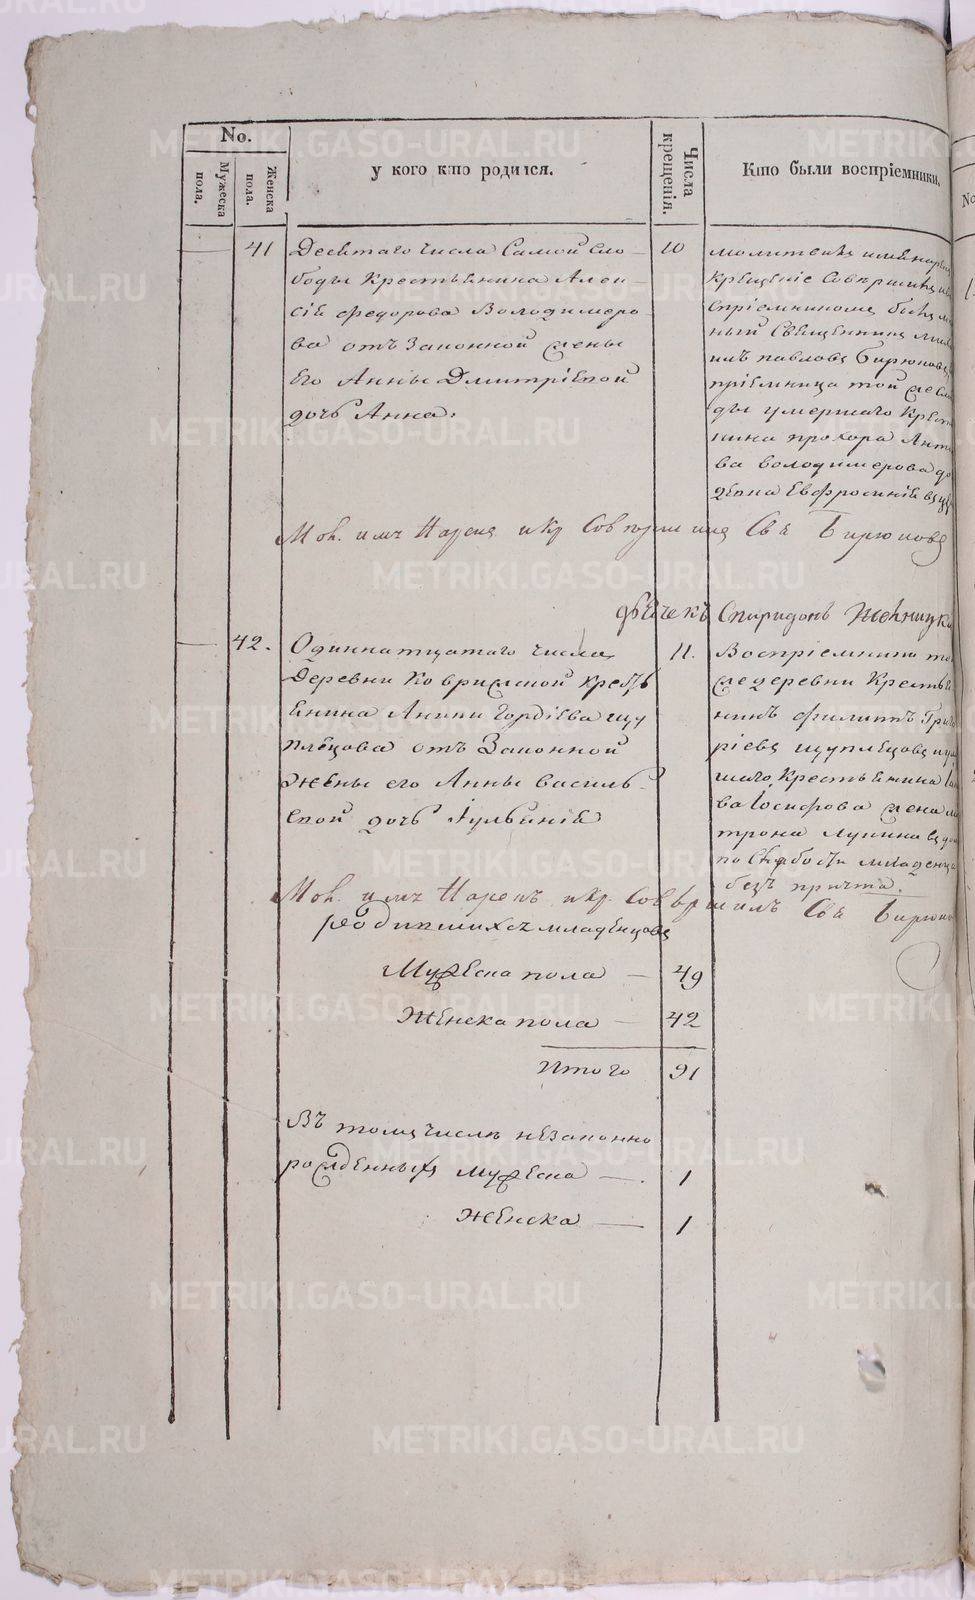 No.
Мужеска пола.
Женска пола.
у кого кто родился.
Числа крещенія.
Кто были воспріемники,
41
Десятаго числа Самой сло
боды Крестьянина Алек
сій федорова Володимеро
ва отъ Законной жены
Его Анны Дмитріевой
дочь Анна.
10
молитвилъ и имя нарекъ
Крещеніе Совершилъ
воспріемникомъ былъ
ный Священникъ Миха
илъ павловъ Бирюковъ
пріемница той же сло
ды умершаго Крест
нина прохора
ва володимерова до
Евфросинія
Мол. имя Нарекъ и Кр. Совершилъ Св. Бирюковъ
дьячекъ Спиридонъ
42.
Одиннатцатаго числа
Деревни Ковриженой Кресть
янина Гордѣева щу
плецова отъ Законной
Жены его Анны василь
евой дочь Іульянія
11.
Воспріемники той
же деревни Крестья
нинъ филипъ Григо
ріевъ щуплецовъ
шаго Крестьянина
ва Іосифова жена ма
трона Лукина
по Слабости младенца
безъ причта.
Мол. имя Нарекъ и Кр. Совершилъ Св. Бирюко
родившихся младенцовъ
Мужеска пола — 49
Женска пола — 42
Итого 91
Въ томъ числѣ незаконно
рожденныхъ мужеска — 1
Женска — 1
METRIKI.GASO-URAL.RU